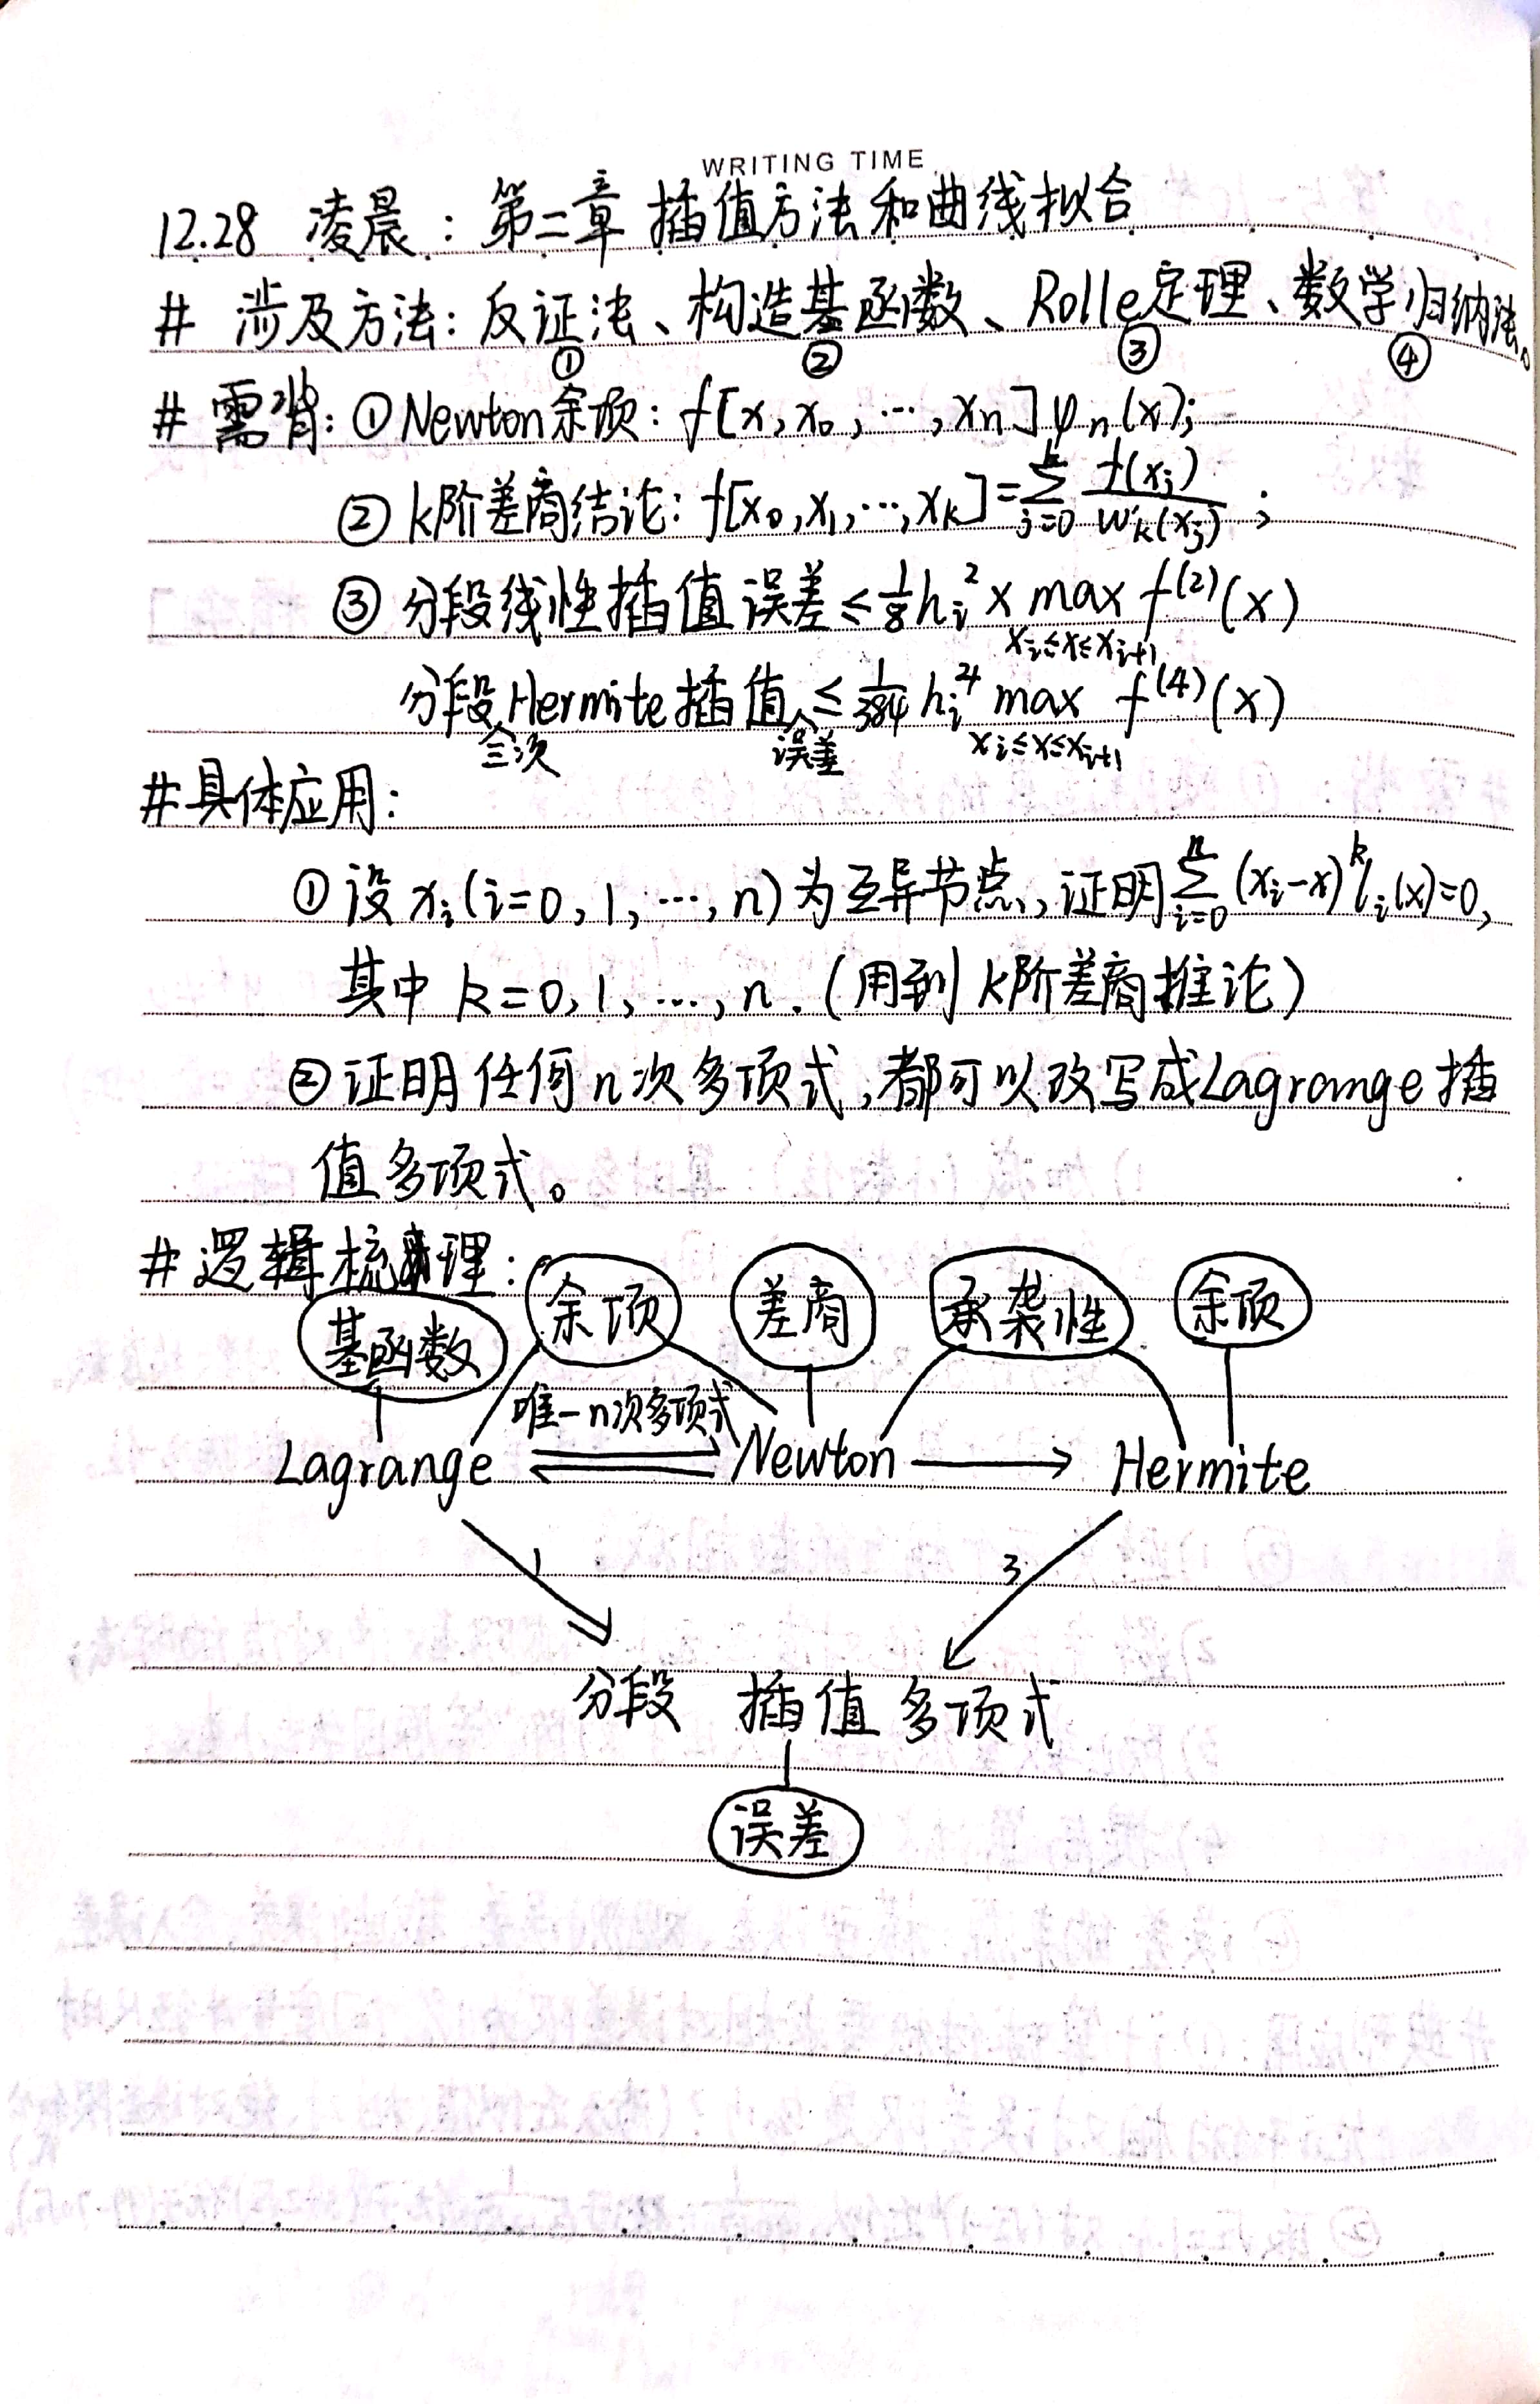 WRITING TIME
12.28 凌晨：第二章 插值方法和曲线拟合
# 涉及方法：反证法、构造基函数、Rolle定理、数学归纳法。
① ② ③ ④
# 需背：①Newton余项：f[x,x₀,…,xn]φn(x);
②k阶差商结论：f[x₀,x₁,…,xk]=∑(j=0→k) f(xj)/w'k(xj)；
③分段线性插值误差≤1/8 hi² × max f⁽²⁾(x)
xi≤x≤xi+1
分段Hermite插值≤1/384 hi⁴ max f⁽⁴⁾(x)
三次 误差 xi≤x≤xi+1
#具体应用：
①设xi(i=0,1,…,n)为互异节点，证明∑(i=0→n)(xi-x)ᵏli(x)=0,
其中 k=0,1,…,n.(用到k阶差商推论)
②证明任何n次多项式，都可以改写成Lagrange插
值多项式。
#逻辑梳理：
基函数 余项 差商 承袭性 余项
唯一n次多项式
Lagrange Newton Hermite
1 3
分段 插值多项式
误差